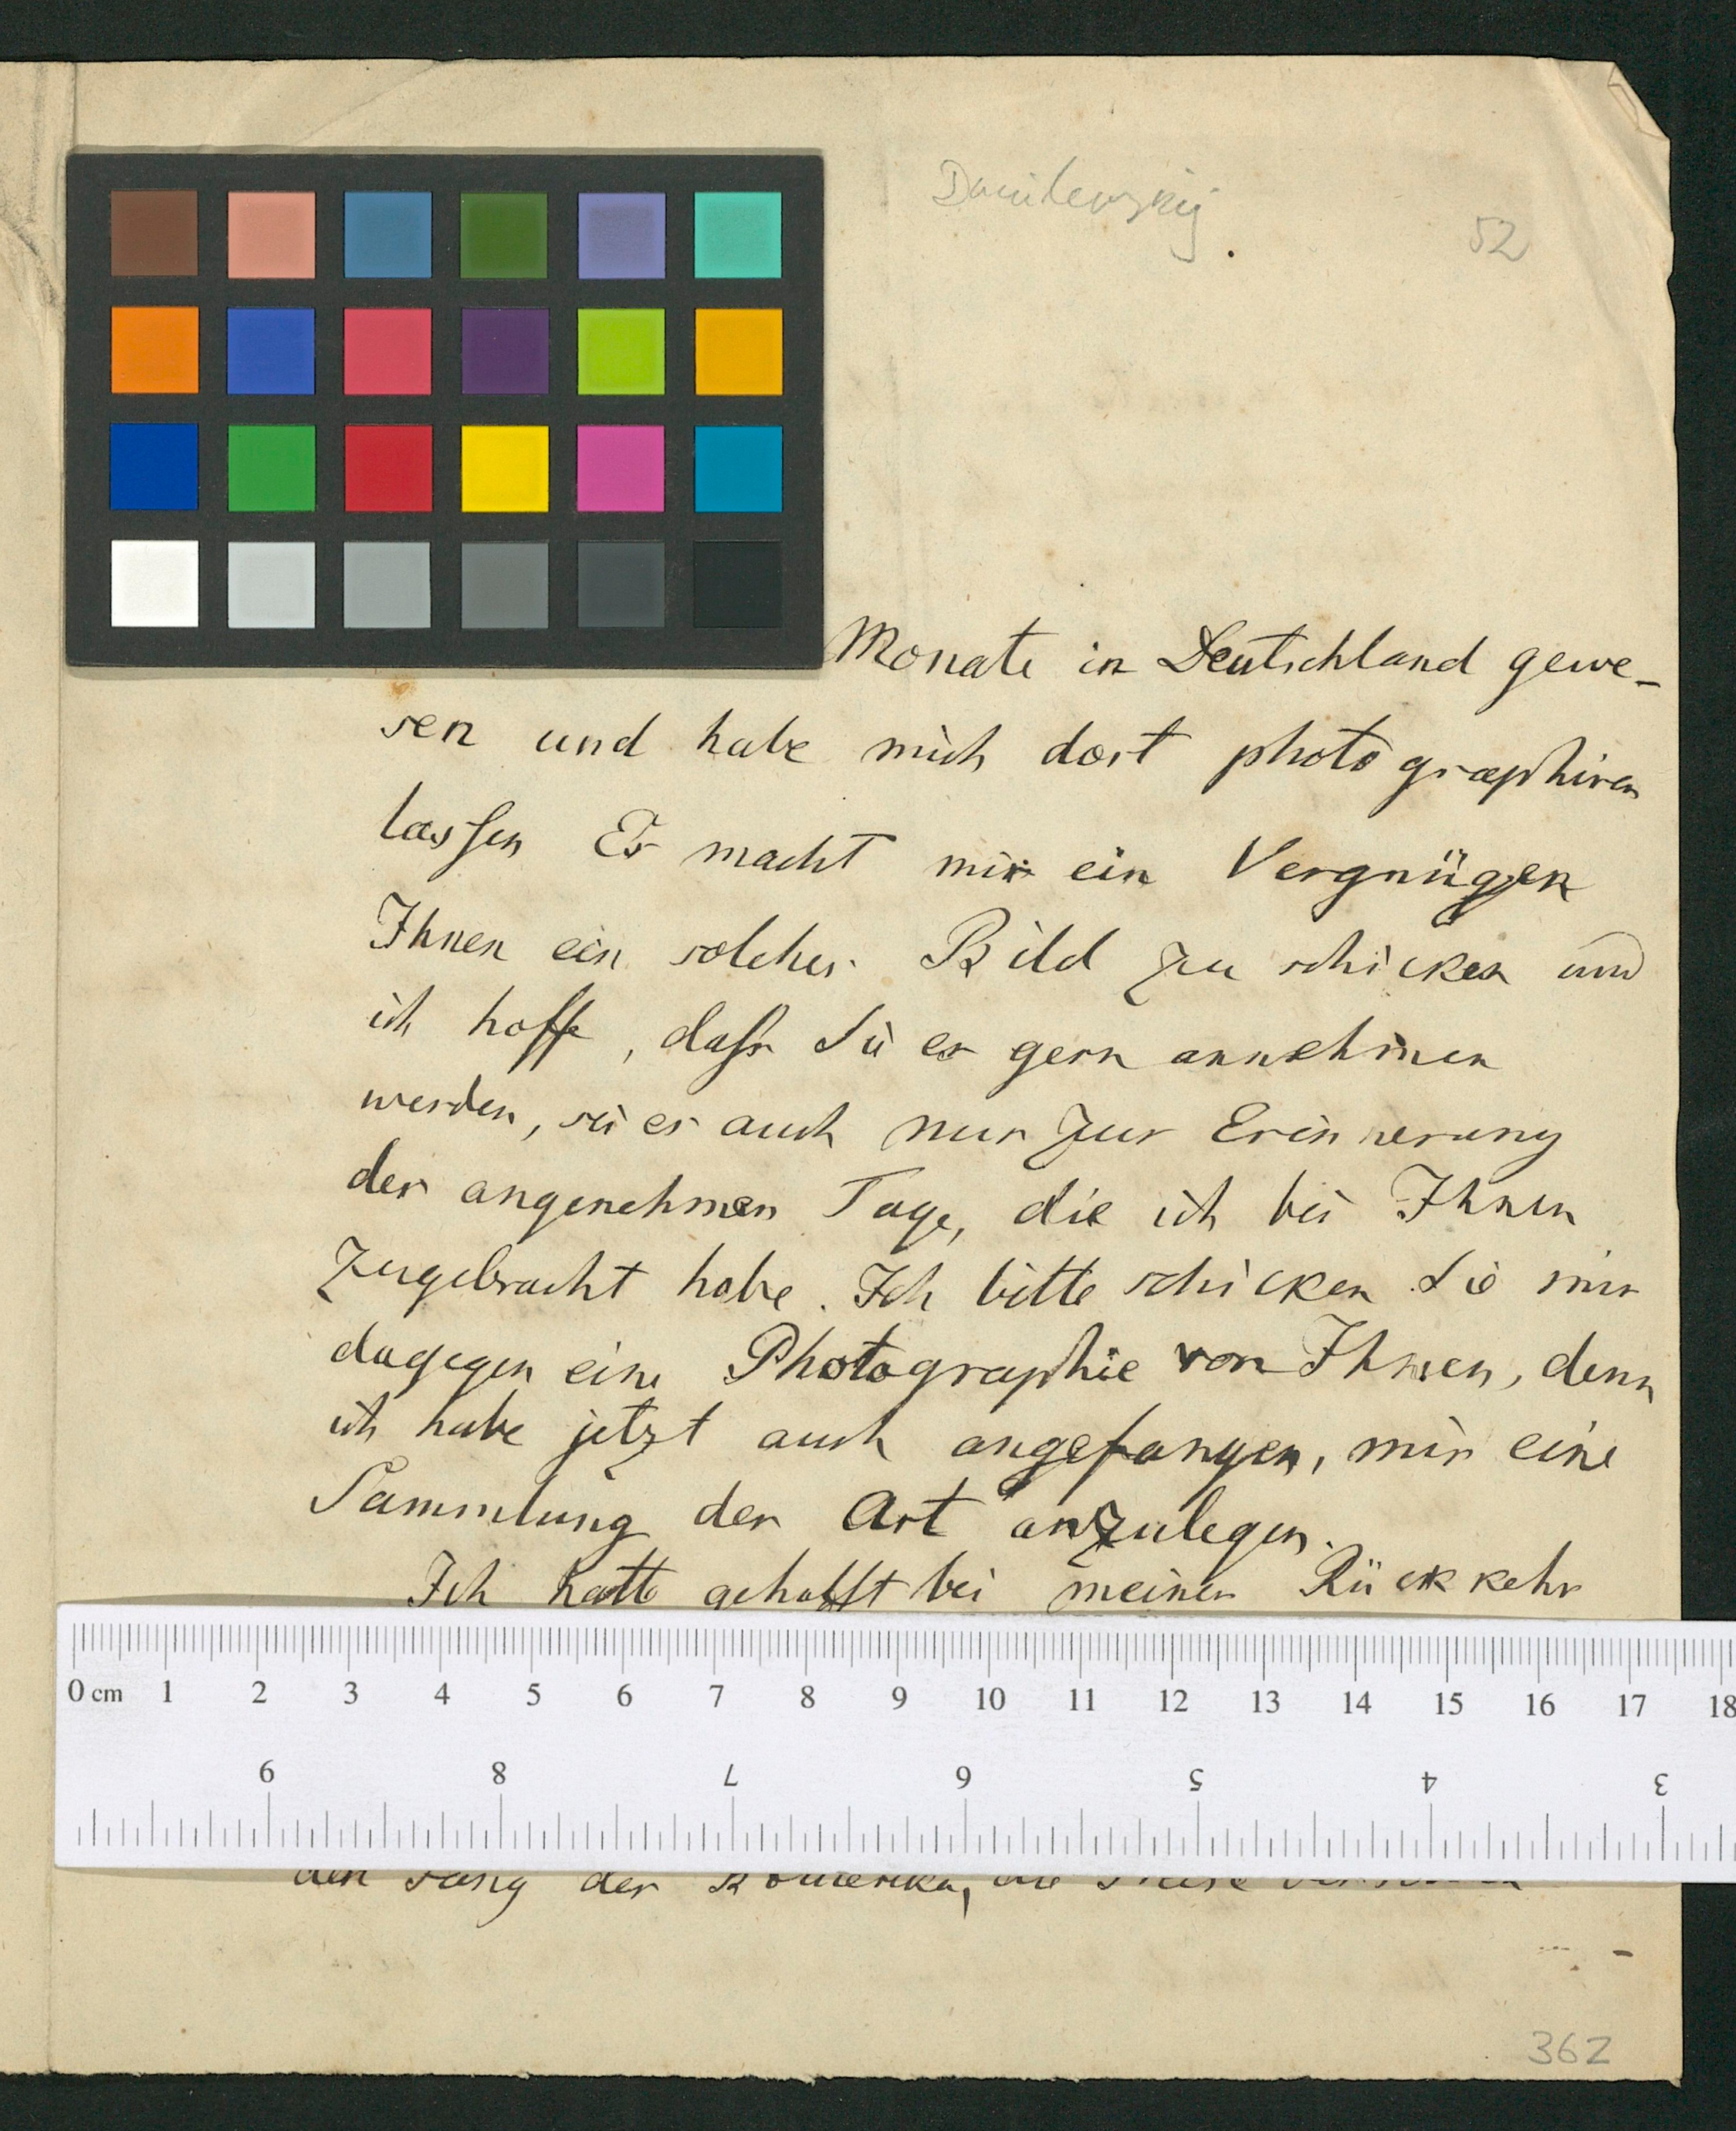 Danilevskij.
52
Monate in Deutschland gewe-
sen und habe mich dort photographiren
lassen Es macht mir ein Vergnügen
Ihnen ein solches Bild zu schicken und
ich hoffe, dass Sie es gern annehmen
werden, sei es auch nur zur Erinnerung
der angenehmen Tage, die ich bei Ihnen
zugebracht habe. Ich bitte schicken Sie mir
dagegen eine Photographie von Ihnen, denn
ich habe jetzt auch angefangen, mir eine
Sammlung der Art anzulegen.
Ich hatte gehofft bei meiner Rückkehr
0 cm 1 2 3 4 5 6 7 8 9 10 11 12 13 14 15 16 17 18
9 8 7 6 5 4 3
den der
362